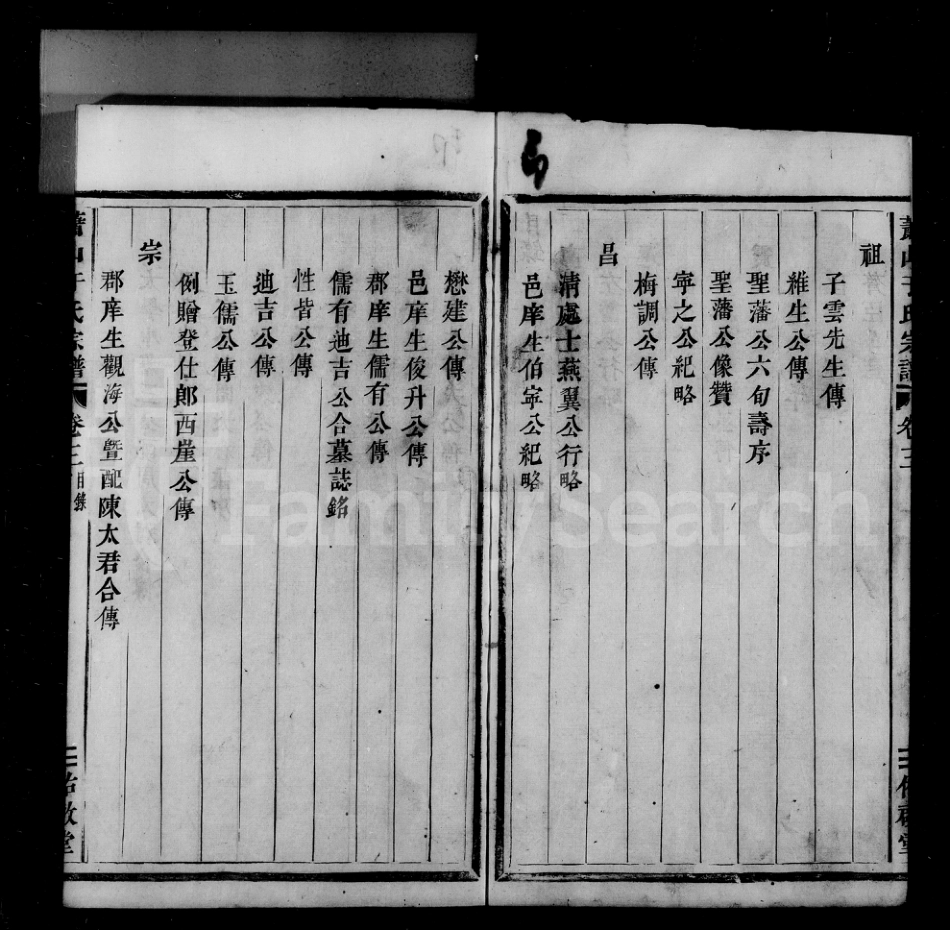 祖
子雲先生傳
維生公傳
聖藩公六旬壽序
聖藩公像贊
寧之公紀略
梅調公傳
昌
清處士燕翼公行略
邑庠生伯寧公紀略
懋建公傳
邑庠生俊升公傳
郡庠生儒有公傳
儒有迪吉公合墓誌銘
性皆公傳
迪吉公傳
玉儒公傳
例贈登仕郎西崖公傳
崇
郡庠生觀海公暨配陳太君合傳
蕭山于氏宗譜
卷三
目錄
二
FamilySearch